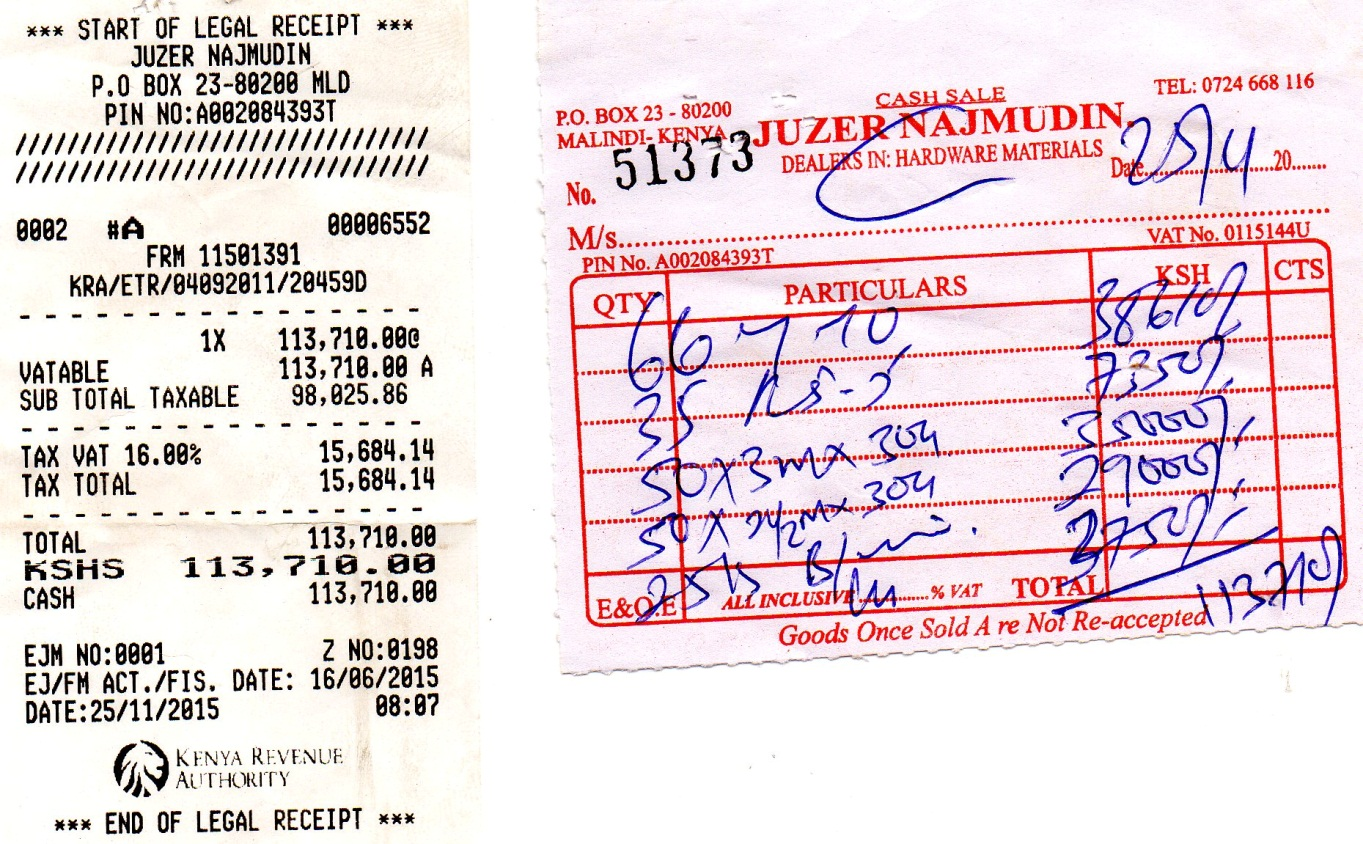 *** START OF LEGAL RECEIPT ***
JUZER NAJMUDIN
P.O BOX 23-80200 MLD
PIN NO:A002084393T
////////////////////////////////////
////////////////////////////////////
0002 #A 00006552
FRM 11501391
KRA/ETR/04092011/20459D
- - - - - - - - - - - - - - - - - -
1X 113,710.00@
VATABLE 113,710.00 A
SUB TOTAL TAXABLE 98,025.86
- - - - - - - - - - - - - - - - - -
TAX VAT 16.00% 15,684.14
TAX TOTAL 15,684.14
- - - - - - - - - - - - - - - - - -
TOTAL 113,710.00
KSHS 113,710.00
CASH 113,710.00
EJM NO:0001 Z NO:0198
EJ/FM ACT./FIS. DATE: 16/06/2015
DATE:25/11/2015 08:07
KENYA REVENUE
AUTHORITY
*** END OF LEGAL RECEIPT ***
CASH SALE
P.O. BOX 23 - 80200 TEL: 0724 668 116
MALINDI- KENYA JUZER NAJMUDIN.
DEALERS IN: HARDWARE MATERIALS
No. 51373 Date 20
M/s
PIN No. A002084393T VAT No. 0115144U
QTY PARTICULARS KSH CTS
66 Y 10 38610/
35 7350/
50 X 3M X 304 35000/
50 X 2 1/2 M X 304 29000/
25 3750/
E&O.E ALL INCLUSIVE % VAT TOTAL 113710/
Goods Once Sold A re Not Re-accepted